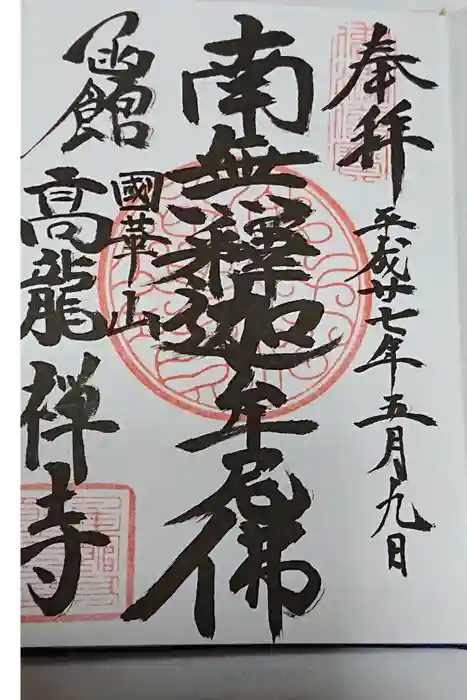 奉拝
平成廿七年五月九日
南無釋迦牟尼佛
國華山
函館
高龍禅寺